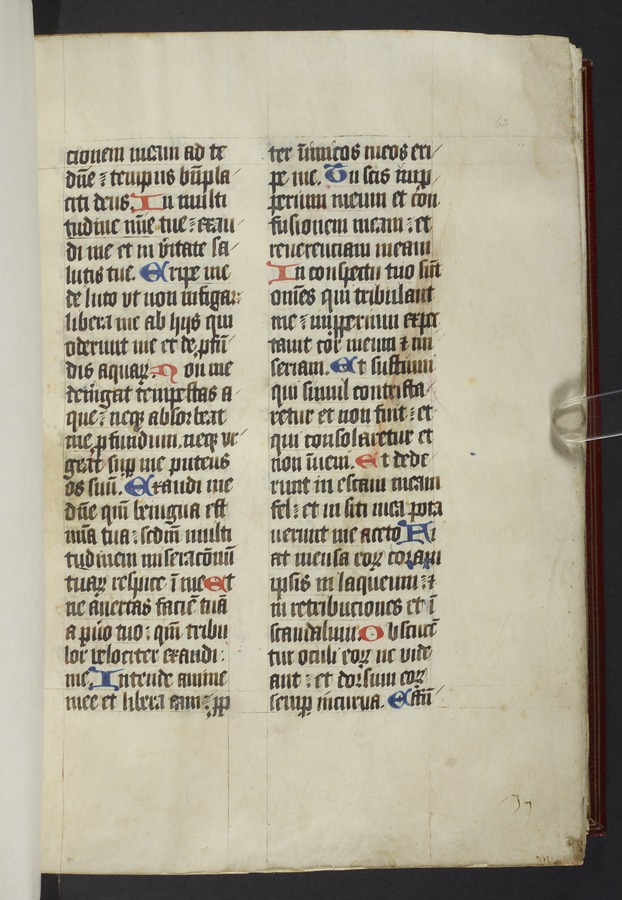 tionem meam ad te
dn̄e : tempus bn̄pla
citi deus. In multi
tudine mīe tue : exau
di me et in v̄itate sa
lutis tue. Eripe me
de luto vt non infigar :
libera me ab hijs qui
oderunt me et de ꝓfū
dis aquaꝝ. Non me
demgat tempestas a
que : neqꝫ absorbeat
me ꝓfundum. neqꝫ vr
geat suꝑ me puteus
os suū. Exaudi me
dn̄e qm̄ benigna est
mīa tua : scdm̄ multi
tudinem miseracōnū
tuaꝝ respice ī me Et
ne auertas faciē tuā
a pūo tuo : qm̄ tribu
lor velociter exaudi :
me. Intende anime
mee et libera eam : ꝓp
ter īimicos meos eri
pe me. Tu scis imꝓ
perium meum et con
fusionem meam : et
reuerenciam meam
In conspectu tuo sūt
omēs qui tribulant
me : imꝓperium expec
tauit cor meum ⁊ mi
seriam. Et sustinui
qui simul contrista
retur et non fuit : et
qui consolaretur et
non īueni. Et dede
runt in escam meam
fel : et in siti mea pota
uerunt me aceto Fi
at mensa eoꝝ coram
ipsis in laqueum : ⁊
in retribuciones et ī
scandalum. Obscurē
tur oculi eoꝝ ne vide
ant : et dorsum eoꝝ
semꝑ incurua. Effū